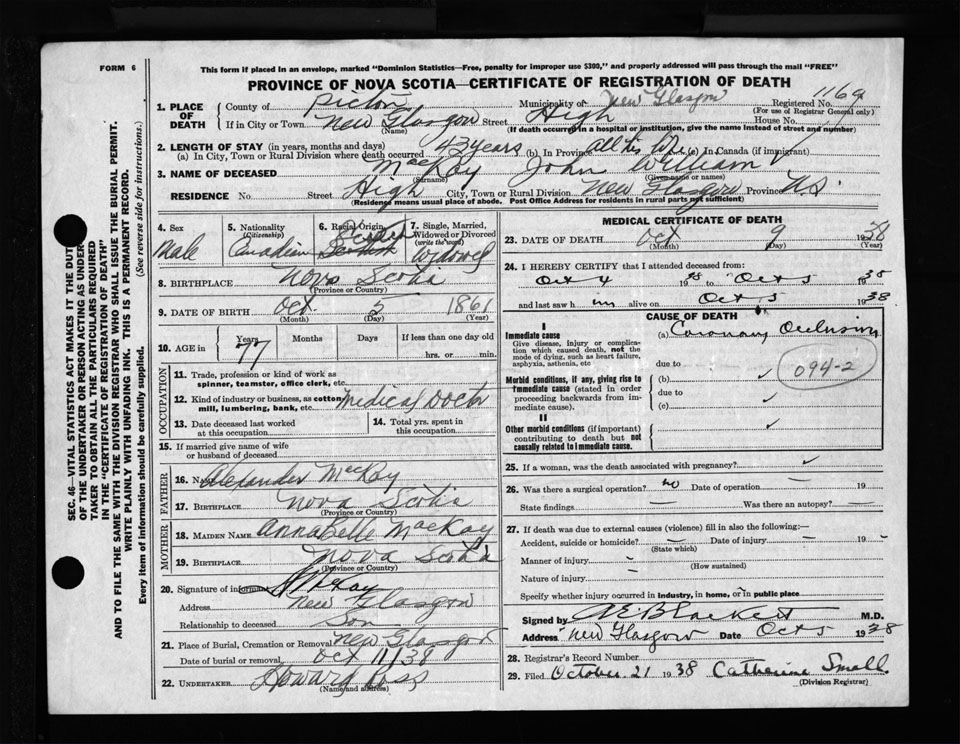 FORM 6
This form if placed in an envelope, marked "Dominion Statistics—Free, penalty for improper use $300," and properly addressed will pass through the mail "FREE"
PROVINCE OF NOVA SCOTIA—CERTIFICATE OF REGISTRATION OF DEATH
SEC. 46—VITAL STATISTICS ACT MAKES IT THE DUTY
OF THE UNDERTAKER OR PERSON ACTING AS UNDER-
TAKER TO OBTAIN ALL THE PARTICULARS REQUIRED
IN THE "CERTIFICATE OF REGISTRATION OF DEATH"
AND TO FILE THE SAME WITH THE DIVISION REGISTRAR WHO SHALL ISSUE THE BURIAL PERMIT.
WRITE PLAINLY WITH UNFADING INK. THIS IS A PERMANENT RECORD.
Every item of information should be carefully supplied. (See reverse side for instructions.)
1. PLACE OF DEATH County of Pictou Municipality of New Glasgow Registered No. 1169
(For use of Registrar General only)
If in City or Town New Glasgow Street High House No.
(Name) (If death occurred in a hospital or institution, give the name instead of street and number)
2. LENGTH OF STAY (in years, months and days)
(a) In City, Town or Rural Division where death occurred 43 years (b) In Province all his life (c) In Canada (if immigrant)
3. NAME OF DECEASED MacKay John William
(Surname) (Given name or names)
RESIDENCE No. Street High City, Town or Rural Division New Glasgow Province N.S.
(Residence means usual place of abode. Post Office Address for residents in rural parts not sufficient)
4. Sex Male
5. Nationality (Citizenship) Canadian
6. Racial Origin Scotch
7. Single, Married, Widowed or Divorced (write the word) Widowed
8. BIRTHPLACE Nova Scotia
(Province or Country)
9. DATE OF BIRTH Oct 5 1861
(Month) (Day) (Year)
10. AGE in Years 77 Months Days If less than one day old
hrs. or min.
OCCUPATION
11. Trade, profession or kind of work as
spinner, teamster, office clerk, etc.
12. Kind of industry or business, as cotton
mill, lumbering, bank, etc. Medical Doctor
13. Date deceased last worked
at this occupation
14. Total yrs. spent in
this occupation
15. If married give name of wife
or husband of deceased
FATHER
16. Name Alexander MacKay
17. BIRTHPLACE Nova Scotia
(Province or Country)
MOTHER
18. MAIDEN NAME AnnaBelle MacKay
19. BIRTHPLACE Nova Scotia
(Province or Country)
20. Signature of informant McKay
Address New Glasgow
Relationship to deceased Son
21. Place of Burial, Cremation or Removal New Glasgow
Date of burial or removal Oct 11/38
22. UNDERTAKER Howard Ross
(Name and address)
MEDICAL CERTIFICATE OF DEATH
23. DATE OF DEATH Oct 9 1938
(Month) (Day) (Year)
24. I HEREBY CERTIFY that I attended deceased from:
Oct 4 1938 to Oct 5 1938
and last saw him alive on Oct 5 1938
CAUSE OF DEATH
I
Immediate cause
Give disease, injury or complica-
tion which caused death, not the
mode of dying, such as heart failure,
asphyxia, asthenia, etc
(a) Coronary Occlusion
due to
094-2
Morbid conditions, if any, giving rise to
immediate cause (stated in order
proceeding backwards from im-
mediate cause).
(b)
due to
(c)
II
Other morbid conditions (if important)
contributing to death but not
causally related to immediate cause.
25. If a woman, was the death associated with pregnancy?
26. Was there a surgical operation? no Date of operation 19
State findings Was there an autopsy?
27. If death was due to external causes (violence) fill in also the following:—
Accident, suicide or homicide? Date of injury 19
(State which)
Manner of injury
(How sustained)
Nature of injury
Specify whether injury occurred in industry, in home, or in public place
Signed by A E Blackett M.D.
Address New Glasgow Date Oct 5 1938
28. Registrar's Record Number
29. Filed October 21 1938 Catherine Small
(Division Registrar)